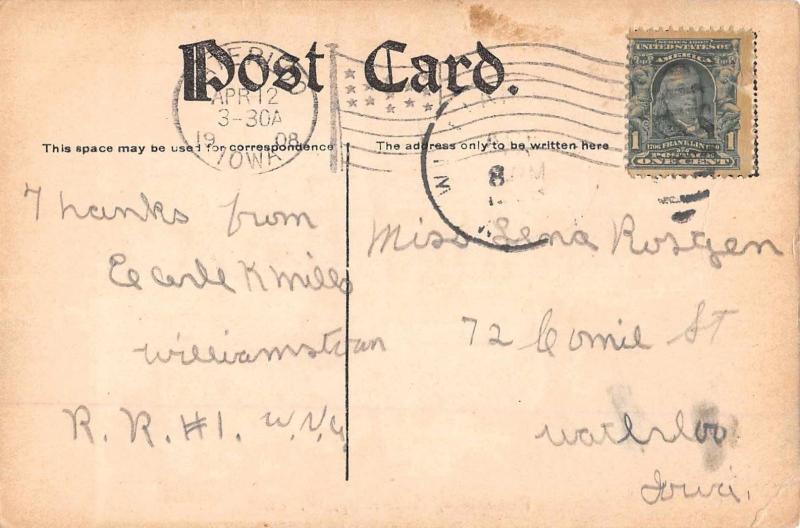 Post Card.
APR 12
3-30A
1908
IOWA
8
M
SERIES 1902
UNITED STATES OF
AMERICA
1 FRANKLIN 1
POSTAGE
ONE CENT
This space may be used for correspondence
The address only to be written here
Thanks from
K Mills
Williamstown
R. R. #1. W. Va.
Miss Lena Rosgen
72 St
Waterloo
Iowa.